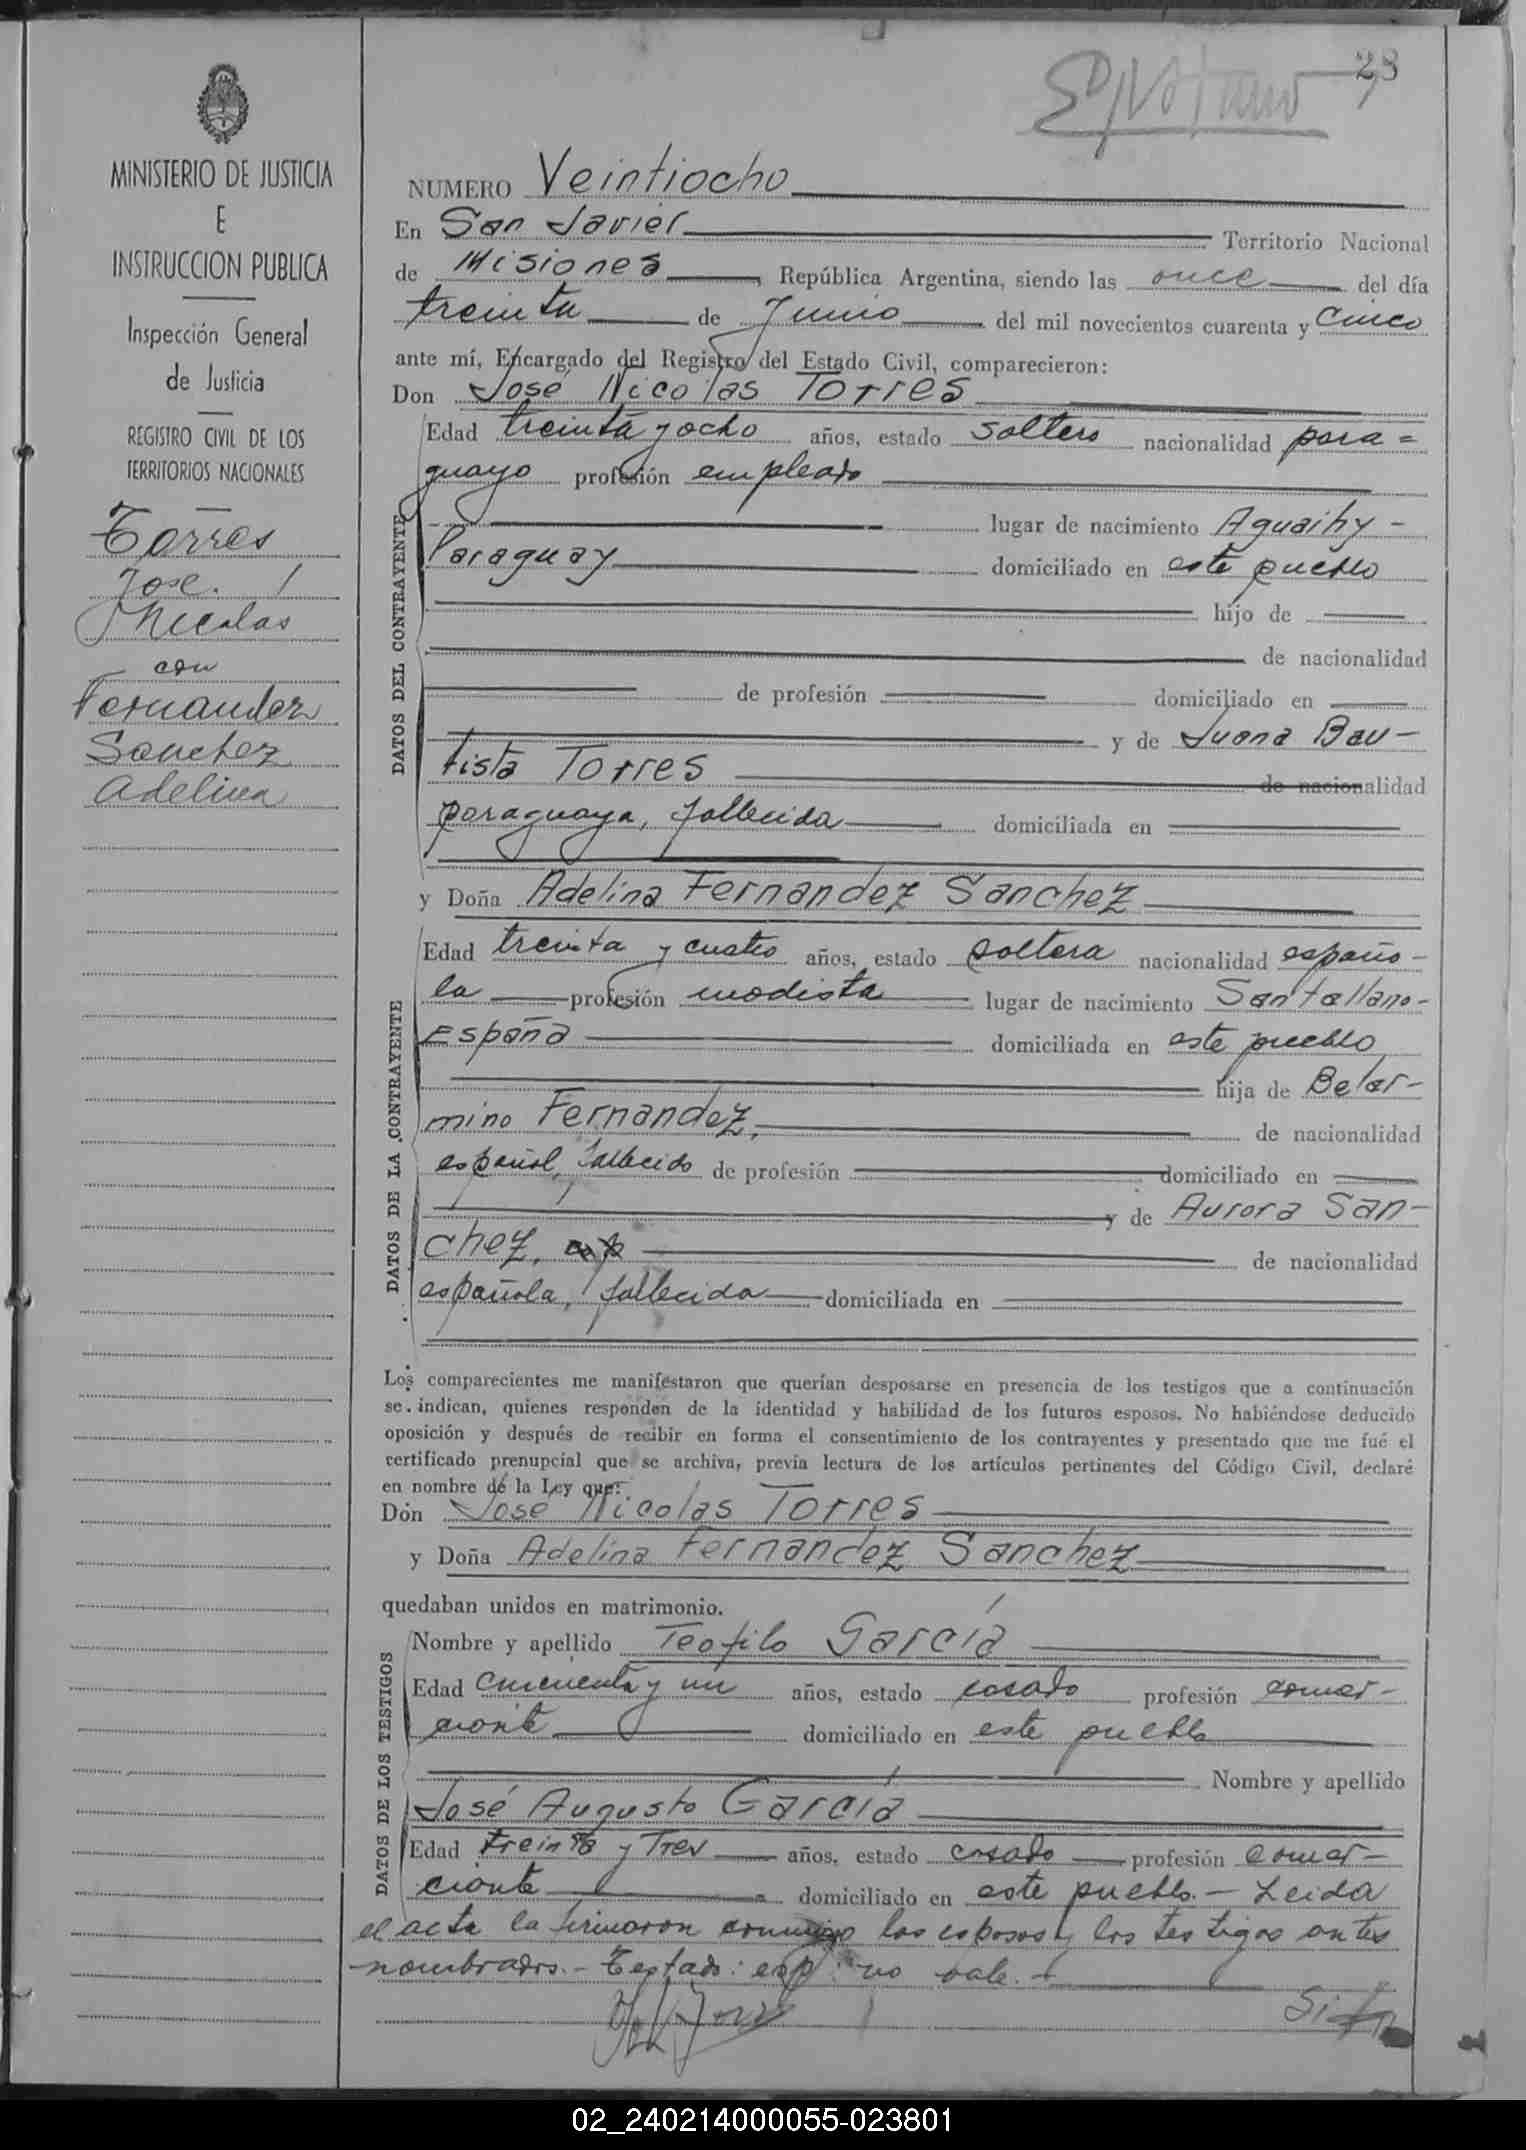 28
MINISTERIO DE JUSTICIA
E
INSTRUCCION PUBLICA
Inspección General
de Justicia
REGISTRO CIVIL DE LOS
TERRITORIOS NACIONALES
Torres
José
Nicolas
con
Fernandez
Sanchez
Adelina
NUMERO Veintiocho
En San Javier Territorio Nacional
de Misiones, República Argentina, siendo las once del día
treinta de Junio del mil novecientos cuarenta y cinco
ante mí, Encargado del Registro del Estado Civil, comparecieron:
Don José Nicolas Torres
DATOS DEL CONTRAYENTE
Edad treinta y ocho años, estado soltero nacionalidad para=
guayo profesión empleado
lugar de nacimiento Aguaihy-
Paraguay domiciliado en este pueblo
hijo de
de nacionalidad
de profesión domiciliado en
y de Juana Bau-
tista Torres de nacionalidad
paraguaya, fallecida domiciliada en
y Doña Adelina Fernandez Sanchez
DATOS DE LA CONTRAYENTE
Edad treinta y cuatro años, estado soltera nacionalidad españo-
la profesión modista lugar de nacimiento Santallano-
España domiciliada en este pueblo
hija de Belar-
mino Fernandez, de nacionalidad
español, fallecido de profesión domiciliado en
y de Aurora San-
chez, esp de nacionalidad
española, fallecida domiciliada en
Los comparecientes me manifestaron que querían desposarse en presencia de los testigos que a continuación
se indican, quienes responden de la identidad y habilidad de los futuros esposos. No habiéndose deducido
oposición y después de recibir en forma el consentimiento de los contrayentes y presentado que me fué el
certificado prenupcial que se archiva, previa lectura de los artículos pertinentes del Código Civil, declaré
en nombre de la Ley que:
Don José Nicolas Torres
y Doña Adelina Fernandez Sanchez
quedaban unidos en matrimonio.
DATOS DE LOS TESTIGOS
Nombre y apellido Teofilo García
Edad cincuenta y un años, estado casado profesión comer-
ciante domiciliado en este pueblo
Nombre y apellido
José Augusto García
Edad treinta y tres años, estado casado profesión comer-
ciante domiciliado en este pueblo.- Leida
el acta la firmaron conmigo los esposos y los testigos antes
nombrados.- Testado: esp: no vale.-
02_240214000055-023801